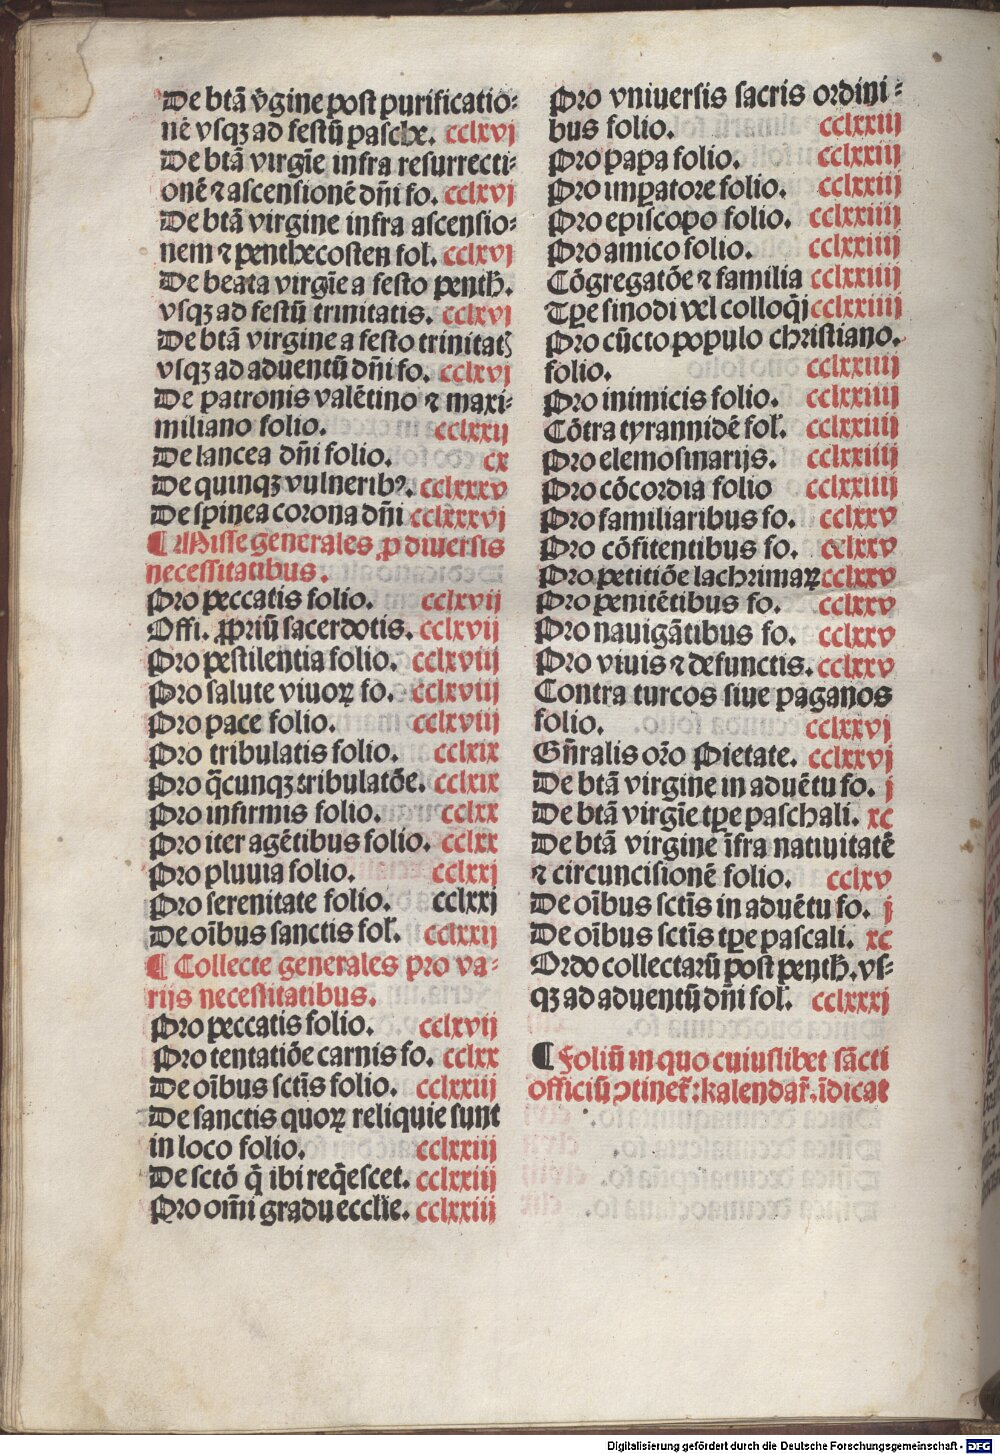 De btā v̄gine post purificatio⸗
nē vsqꝫ ad festū pasche. cclxvj
De btā virgīe infra resurrecti⸗
onē ⁊ ascensionē dn̄i fo. cclxvj
De btā virgine infra ascensio⸗
nem ⁊ penthecosten fol. cclxvj
De beata virgīe a festo penth.
vsqꝫ ad festū trinitatis. cclxvj
De btā virgine a festo trinitatꝭ
vsqꝫ ad aduentū dn̄i fo. cclxvj
De patronis valētino ⁊ maxi⸗
miliano folio. cclxxij
De lancea dn̄i folio. cx
De quinqꝫ vulneribꝰ. cclxxxv
De spinea corona dn̄i cclxxxvj
¶ Misse generales ꝓ diuersis
necessitatibus.
Pro peccatis folio. cclxvij
Offi. ꝓpriū sacerdotis. cclxvij
Pro pestilentia folio. cclxviij
Pro salute viuoꝝ fo. cclxviij
Pro pace folio. cclxviij
Pro tribulatis folio. cclxix
Pro q̄cunqꝫ tribulatōe. cclxix
Pro infirmis folio. cclxx
Pro iter agētibus folio. cclxx
Pro pluuia folio. cclxxj
Pro serenitate folio. cclxxj
De oībus sanctis fol. cclxxij
¶ Collecte generales pro va⸗
rijs necessitatibus.
Pro peccatis folio. cclxvij
Pro tentatiōe carnis fo. cclxx
De oībus sctīs folio. cclxxiij
De sanctis quoꝝ reliquie sunt
in loco folio. cclxxiij
De sctō q̄ ibi req̄escet. cclxxiij
Pro om̄i gradu ecclīe. cclxxiij
Pro vniuersis sacris ordini⸗
bus folio. cclxxiij
Pro papa folio. cclxxiij
Pro imꝑatore folio. cclxxiij
Pro episcopo folio. cclxxiiij
Pro amico folio. cclxxiiij
Cōgregatōe ⁊ familia cclxxiiij
Tꝑe sinodi vel colloq̄j cclxxiiij
Pro cūcto populo christiano.
folio. cclxxiiij
Pro inimicis folio. cclxxiiij
Cōtra tyrannidē fol. cclxxiiij
Pro elemosinarijs. cclxxiiij
Pro cōcordia folio cclxxiiij
Pro familiaribus fo. cclxxv
Pro cōfitentibus fo. cclxxv
Pro petitiōe lachrimaꝝ cclxxv
Pro penitētibus fo. cclxxv
Pro nauigātibus fo. cclxxv
Pro viuis ⁊ defunctis. cclxxv
Contra turcos siue paganos
folio. cclxxvj
Gn̄ralis oro Pietate. cclxxvj
De btā virgine in aduētu fo. j
De btā virgīe tꝑe paschali. xc
De btā virgine īfra natiuitatē
⁊ circuncisionē folio. cclxv
De oībus sctīs in aduētu fo. j
De oībus sctīs tꝑe pascali. xc
Ordo collectarū post penth. vs⸗
qꝫ ad aduentū dn̄i fol. cclxxxj
¶ Foliū in quo cuiuslibet sācti
officiū ↄtinet᷑: kalendar᷑. īdicat
Digitalisierung gefördert durch die Deutsche Forschungsgemeinschaft - DFG